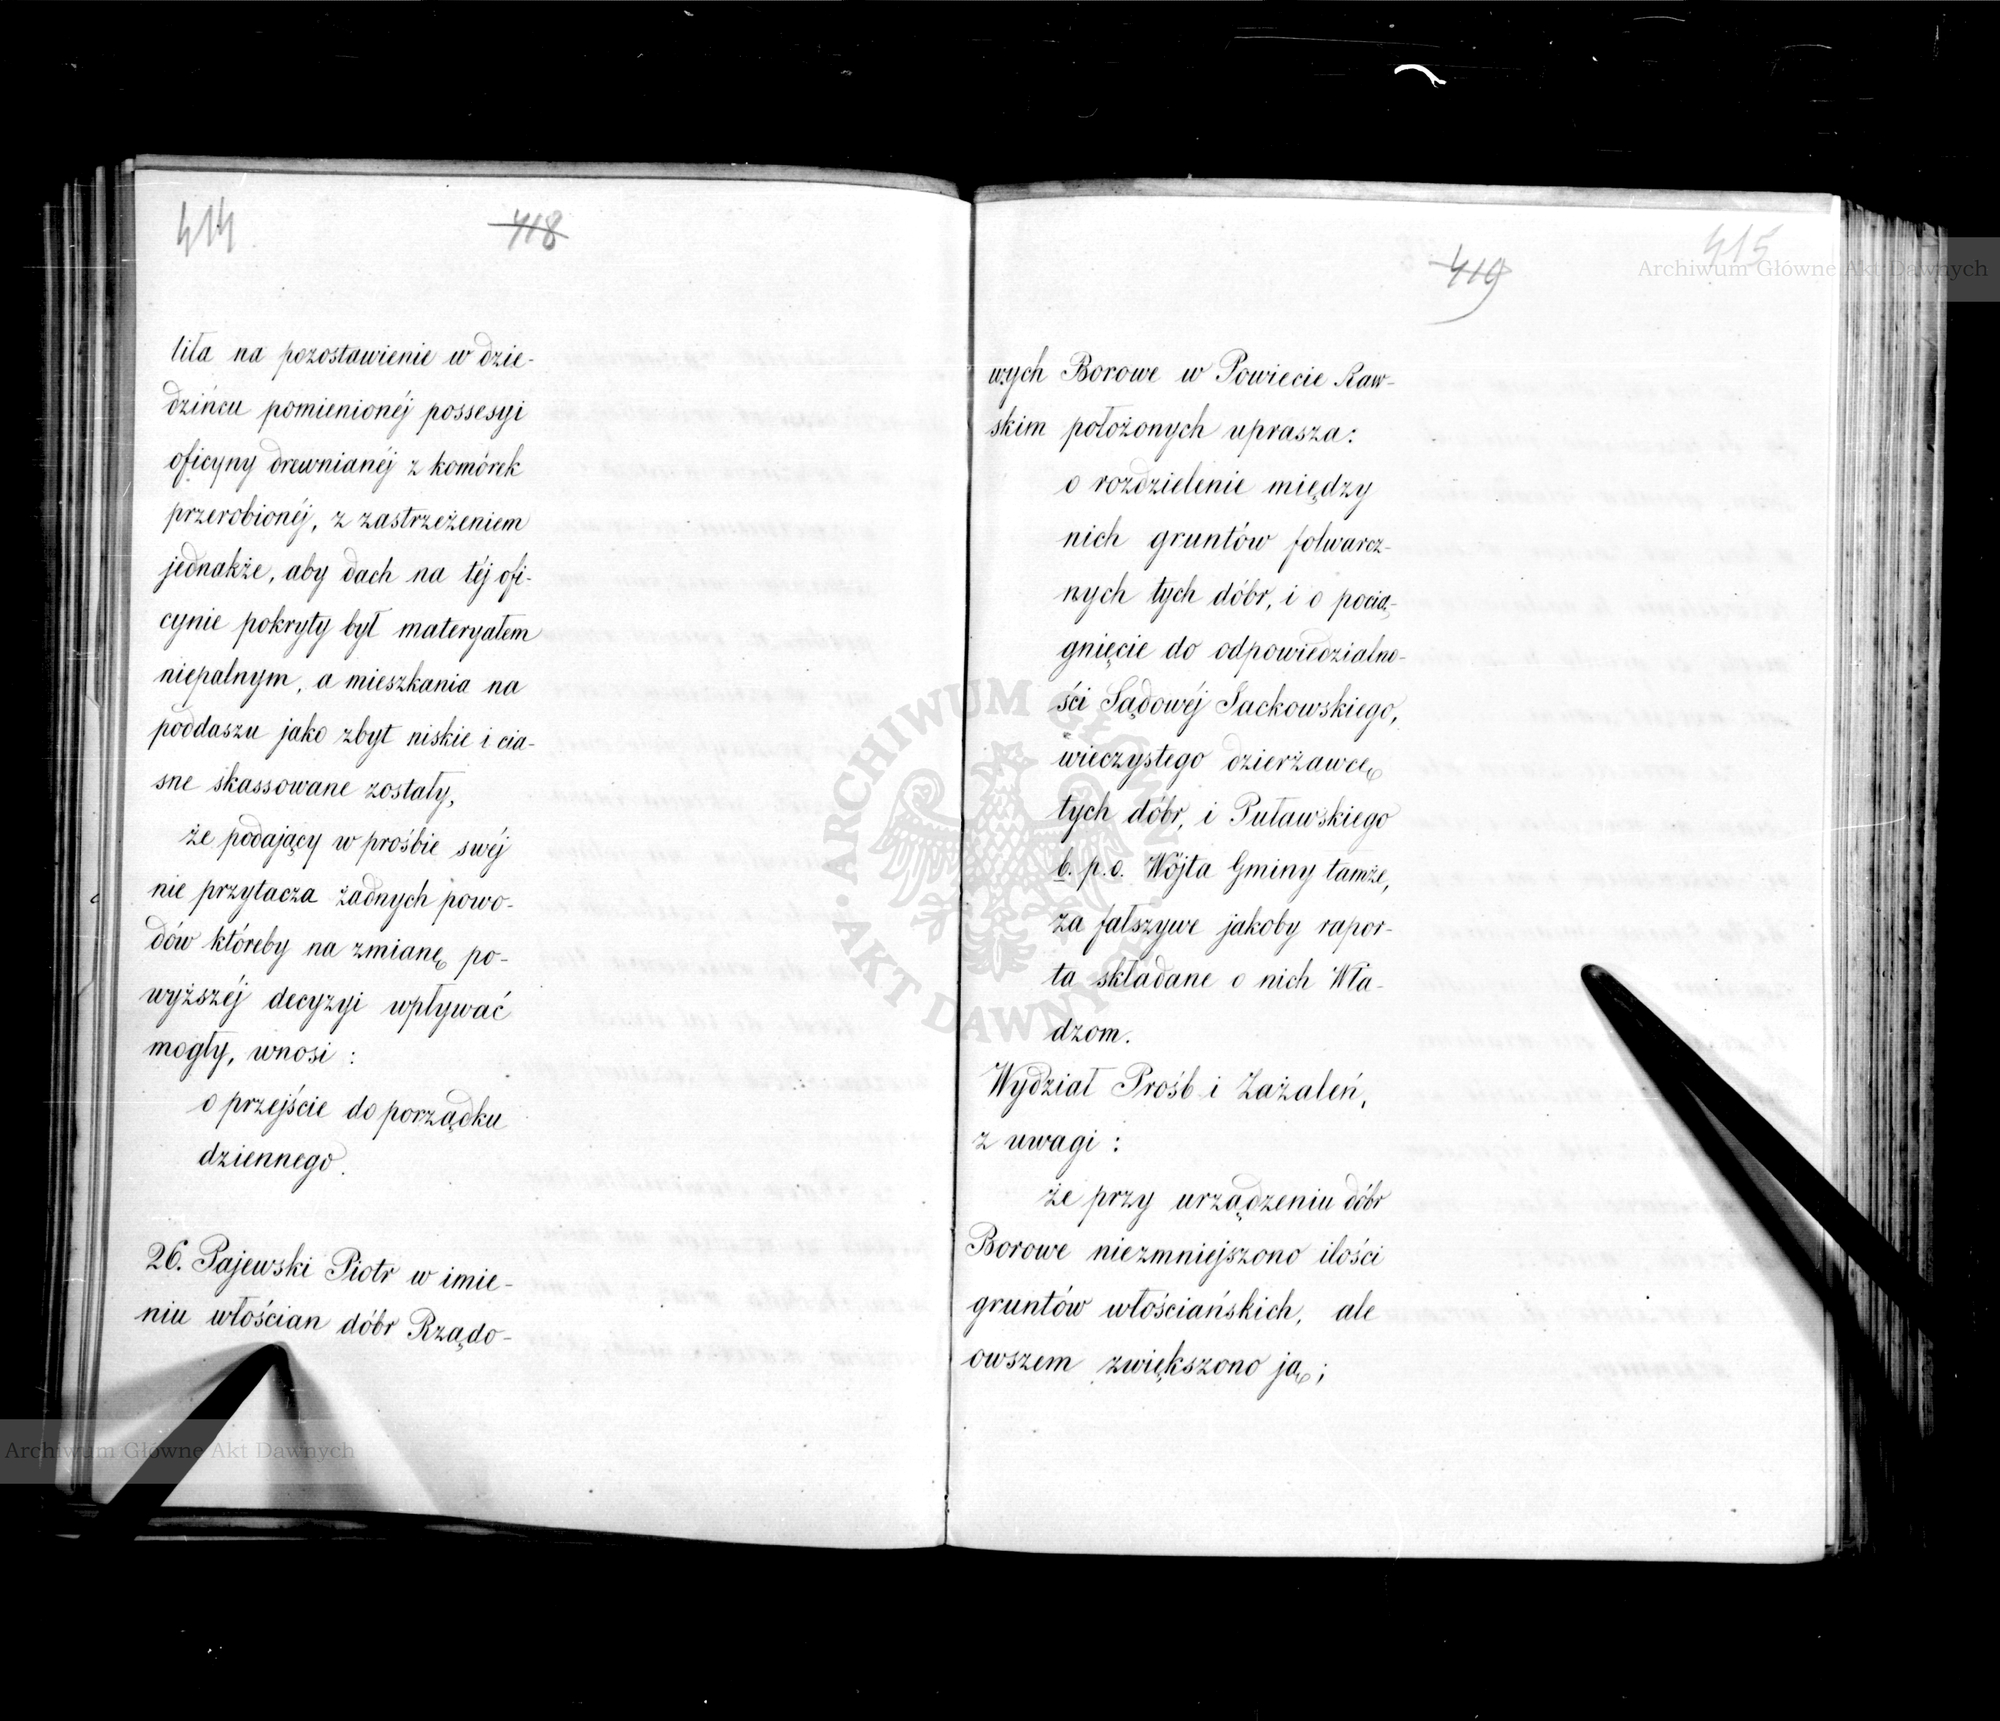 414
418
liła na pozostawienie w dzie-
dzińcu pomienionéj possesyi
oficyny drewnianéj z komórek
przerobionéj, z zastrzeżeniem
jednakże, aby dach na téj ofi-
cynie pokryty był materyałem
niepalnym, a mieszkania na
poddaszu jako zbyt niskie i cia-
sne skassowane zostały,
że podający w prośbie swéj
nie przytacza żadnych powo-
dów któreby na zmianę po-
wyższéj decyzyi wpływać
mogły, wnosi :
o przejście do porządku
dziennego.
26. Pajewski Piotr w imie-
niu włościan dóbr Rządo-
415
419
wych Borowe w Powiecie Raw-
skim położonych uprasza:
o rozdzielenie między
nich gruntów folwarcz-
nych tych dóbr, i o pocią-
gnięcie do odpowiedzialno-
ści Sądowéj Sackowskiego,
wieczystego dzierżawcę
tych dóbr, i Puławskiego
b. p. o. Wójta Gminy tamże,
za fałszywe jakoby rapor-
ta składane o nich Wła-
dzom.
Wydział Próśb i Zażaleń,
z uwagi :
że przy urządzeniu dóbr
Borowe niezmniejszono ilości
gruntów włościańskich, ale
owszem zwiększono ją;
Archiwum Główne Akt Dawnych
Archiwum Główne Akt Dawnych
ARCHIWUM GŁÓWNE AKT DAWNYCH